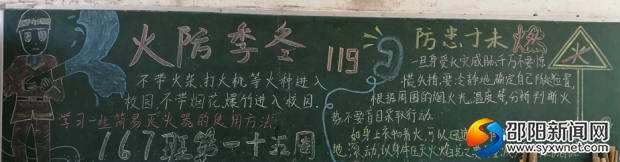 火防季冬
119
不带火柴、打火机等火种进入
校园,不带烟花、爆竹进入校园.
学习一些简易灭火器的使用方法
167班第一十五图
防患于未燃
一旦身受火灾威胁千万不要惊
慌失措,要冷静地确定自己所处位置,
根据周围的烟、火光,温度等,分析判断火
势不要盲目采取行动.
如身上衣物着火,可以迅
地滚动,以身体压灭火焰
邵阳新闻网
www.syxwnet.com